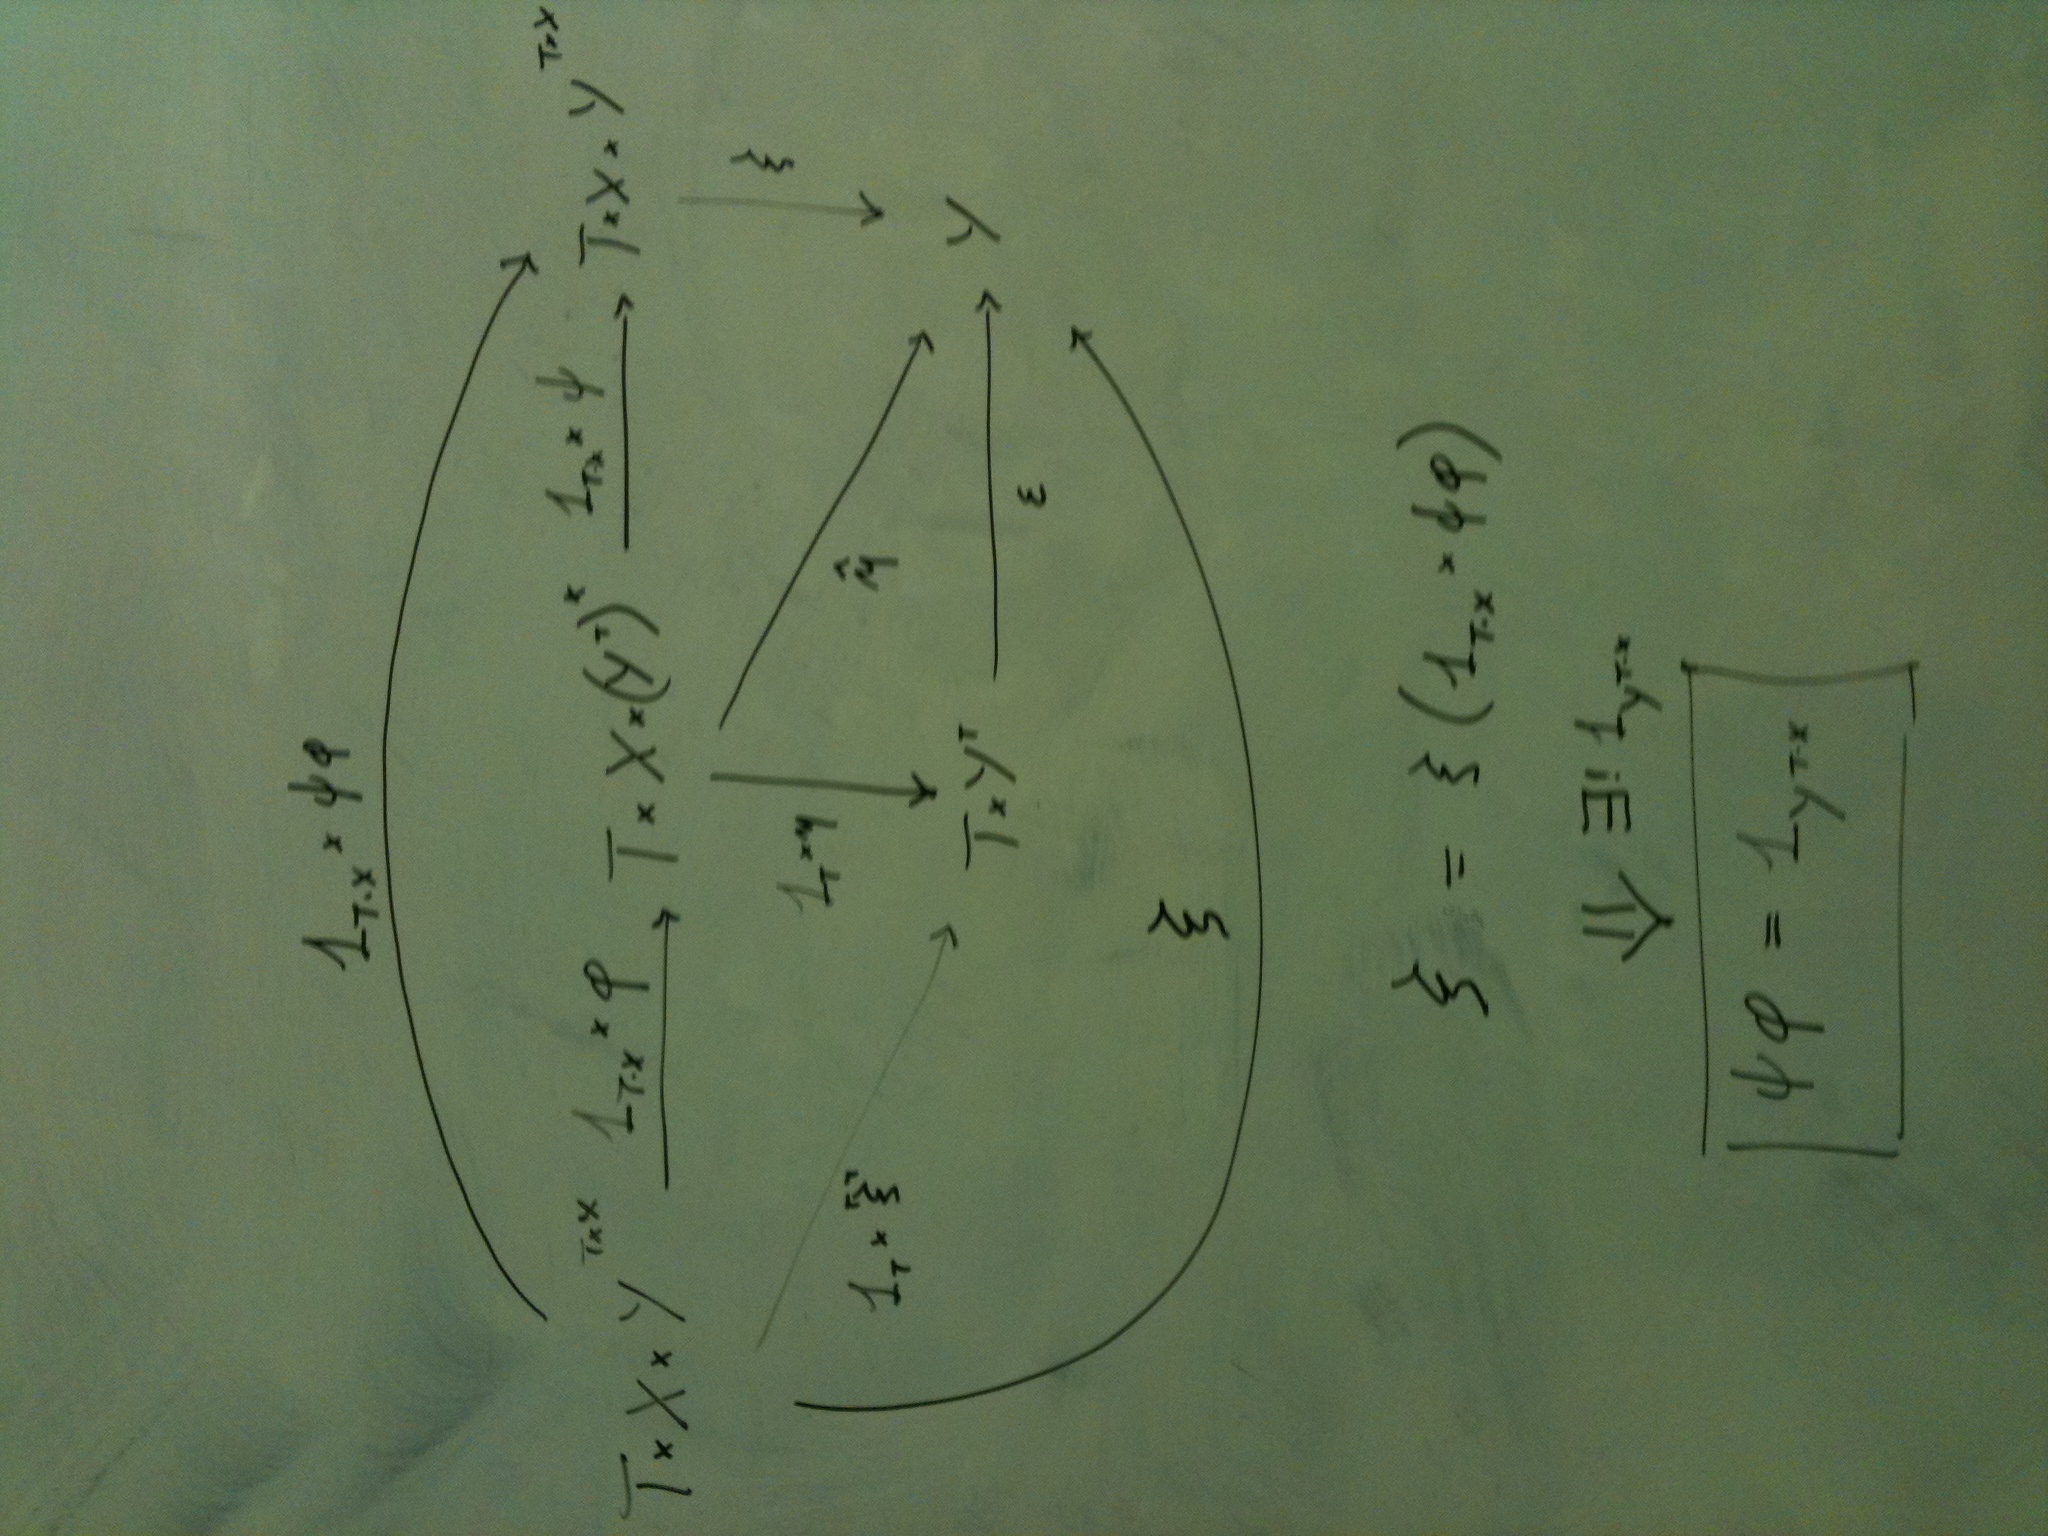 1_{T×X} × ψφ
T × X × Y^{T×X} 1_{T×X} × φ T × X × (Y^T)^X 1_{T×X} × ψ T × X × Y^{T×X}
1_T × η ξ
1_T × ⌜ξ⌝ η̂
T × Y^T Y
ε
ξ
ξ = ξ (1_{T×X} × ψφ)
⇓ ∃! 1_{Y^{T×X}}
ψφ = 1_{Y^{T×X}}